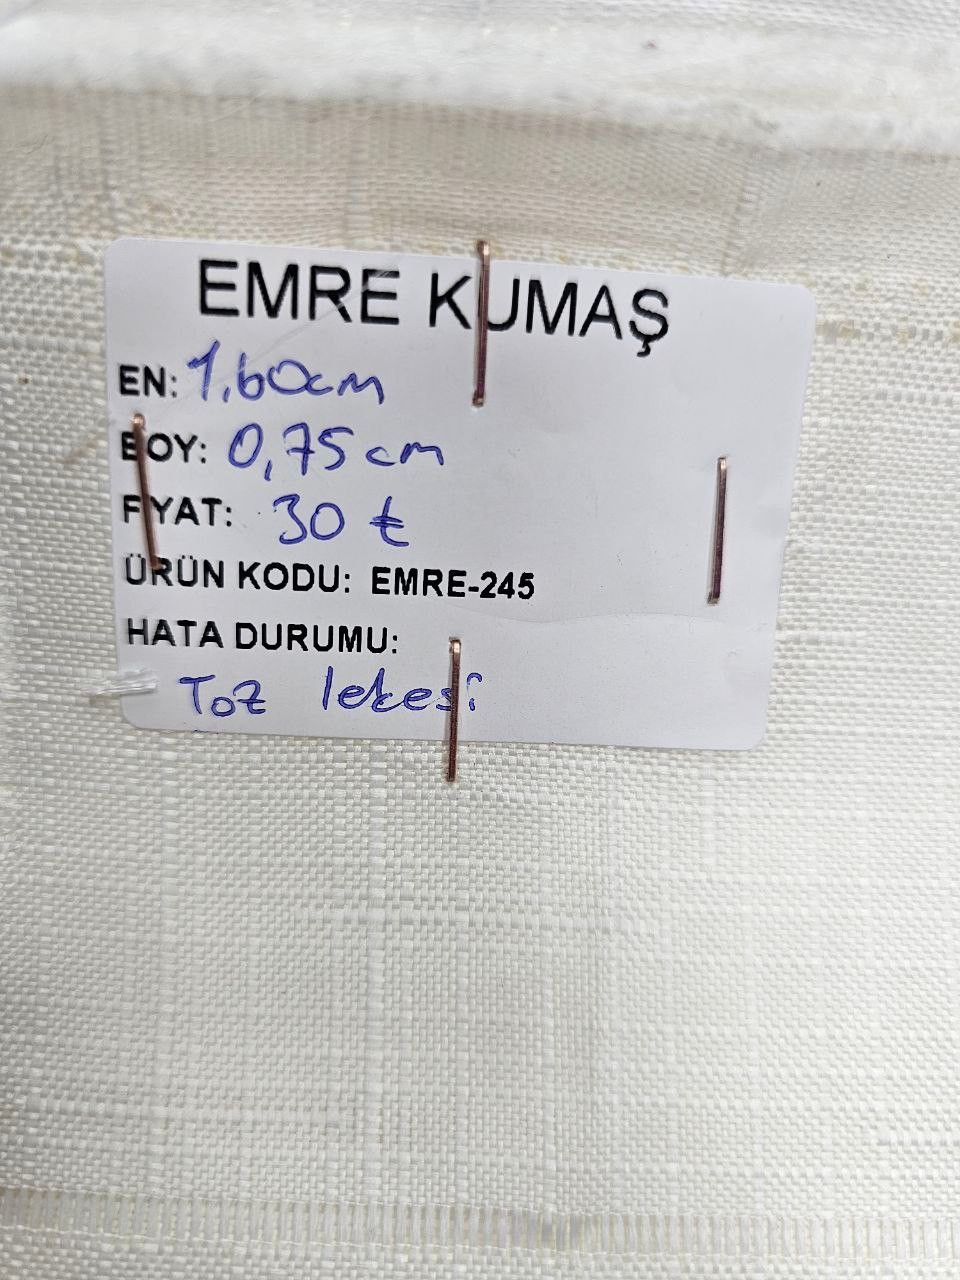 EMRE KUMAŞ
EN: 1,60cm
BOY: 0,75 cm
FYAT: 30 ₺
ÜRÜN KODU: EMRE-245
HATA DURUMU:
Toz lekesi